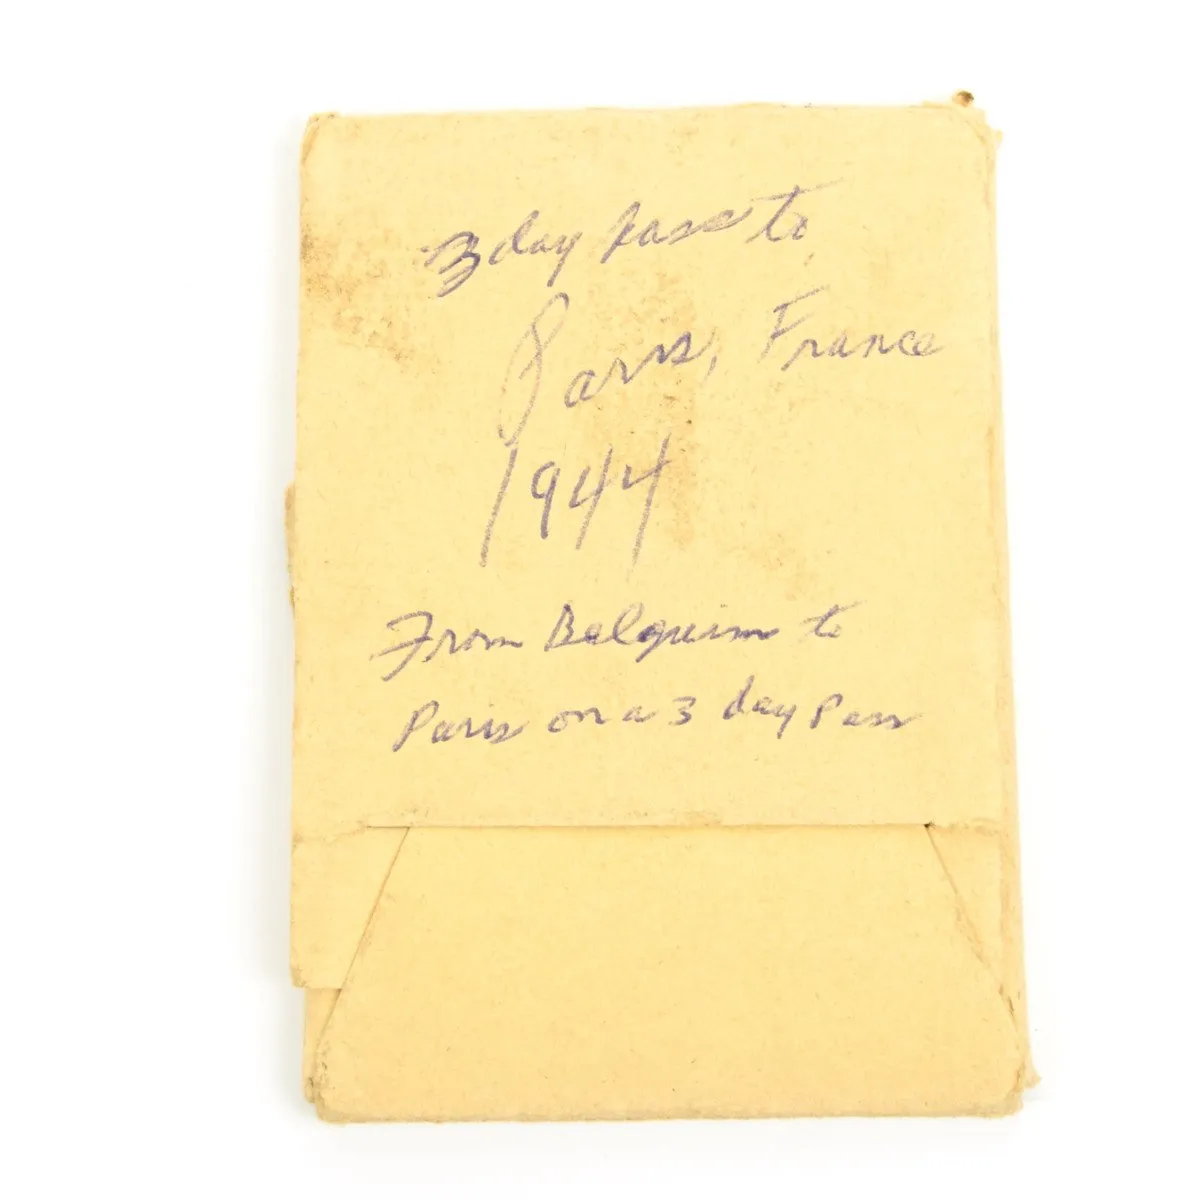 3 day pass to
Paris, France
1944
From Belguim to
Paris on a 3 day Pass